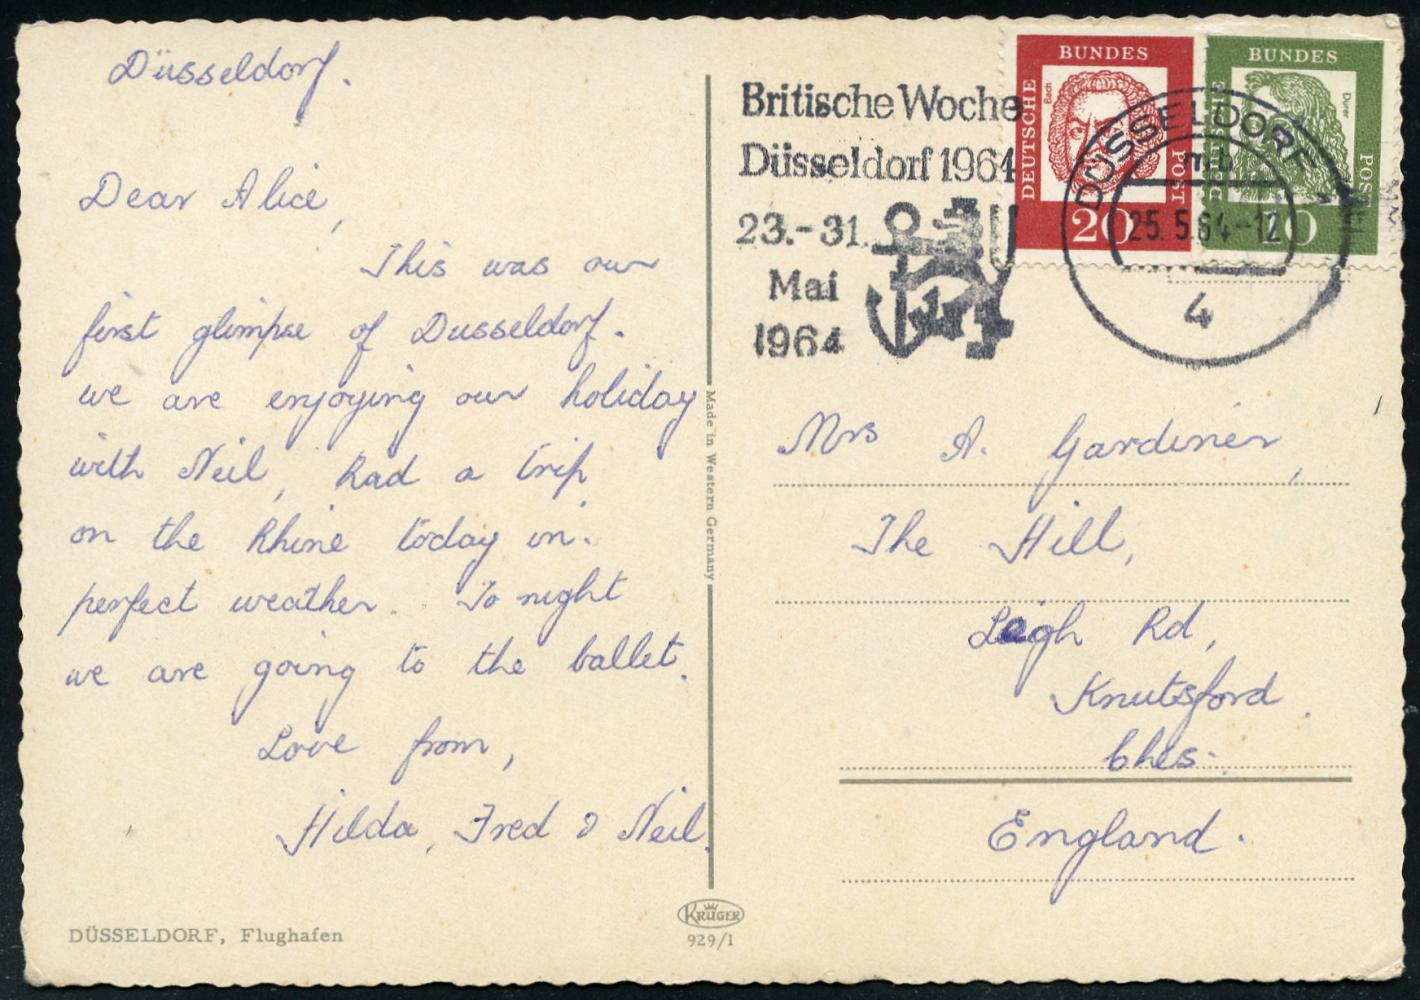 Düsseldorf.
Dear Alice,
This was our
first glimpse of Dusseldorf.
we are enjoying our holiday
with Neil, had a trip
on the Rhine today in
perfect weather. To night
we are going to the ballet.
Love from,
Hilda, Fred & Neil.
DÜSSELDORF, Flughafen
Made in Western Germany
KRÜGER
929/1
Britische Woche
Düsseldorf 1964
23.-31.
Mai
1964
DEUTSCHE BUNDES POST
Bach
20
DEUTSCHE BUNDES POST
Dürer
10
DÜSSELDORF
mb
25.5.64-12
4
Mrs A. Gardiner,
The Hill,
Leigh Rd,
Knutsford.
Ches.
England.